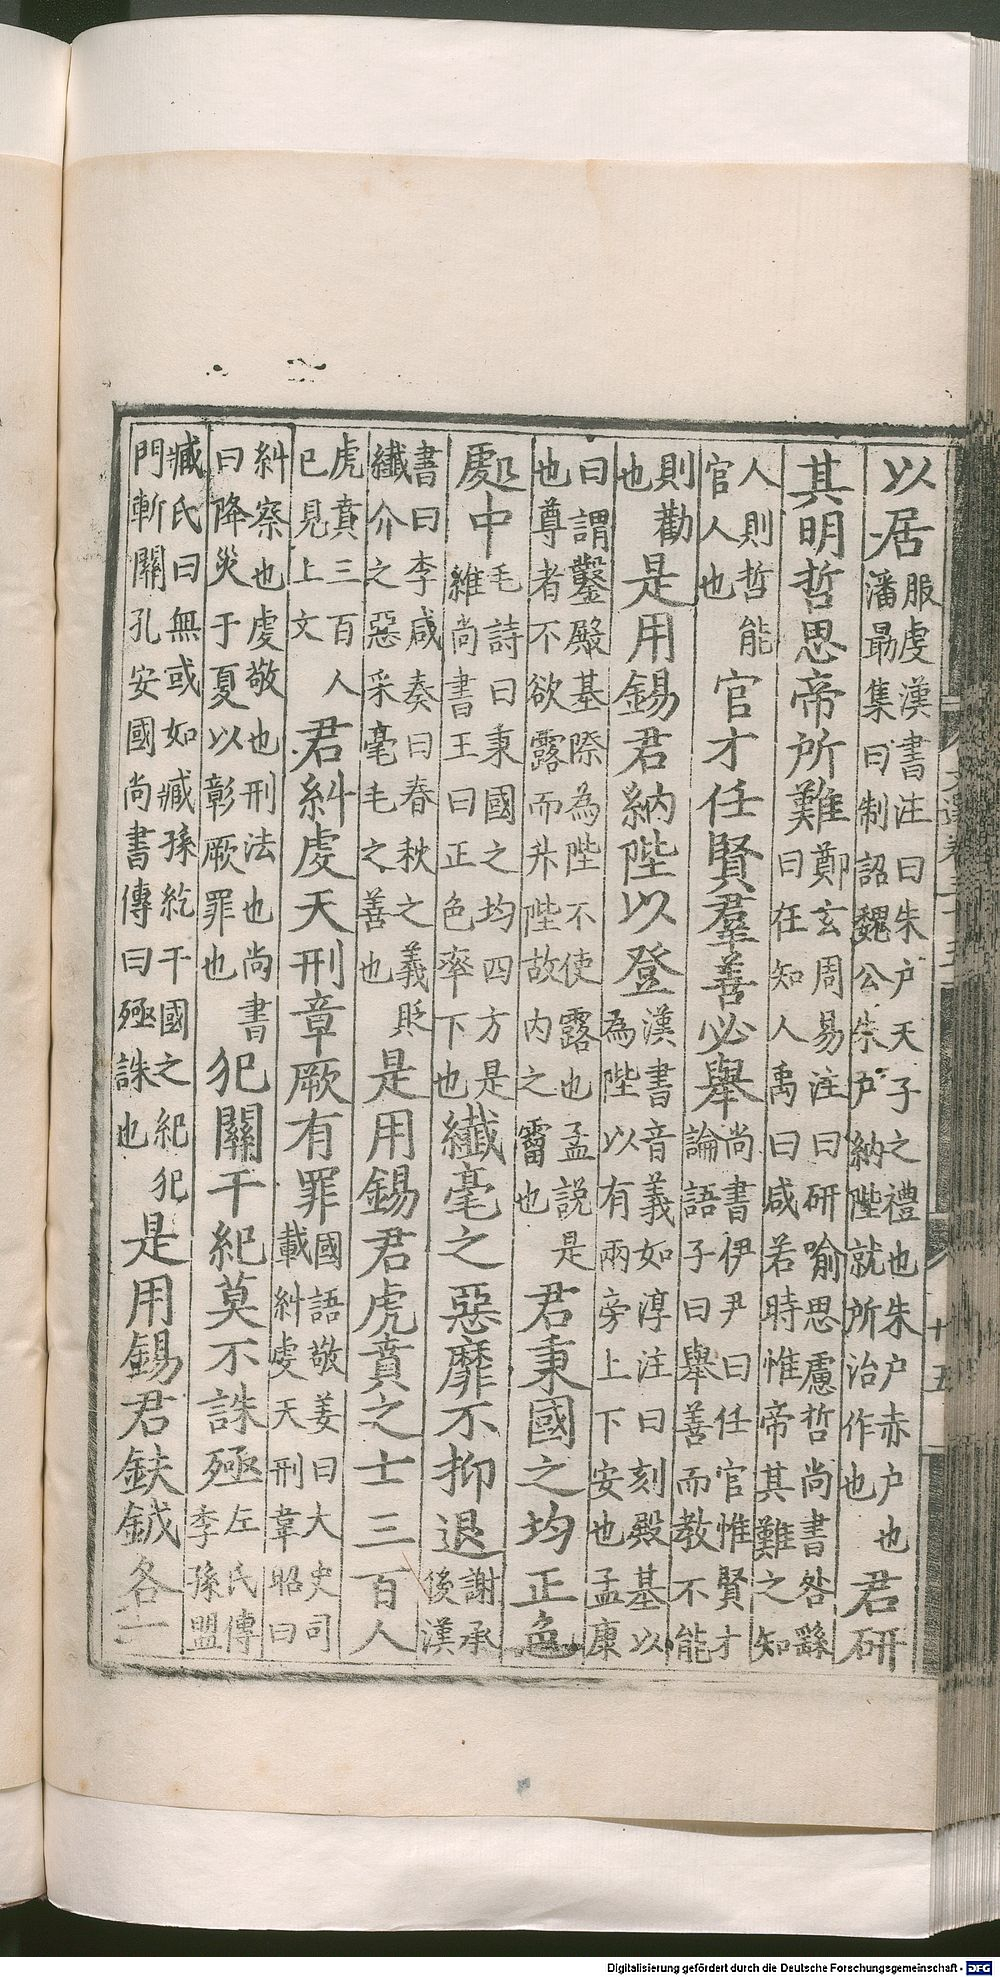 以居服虔漢書注曰朱戶天子之禮也朱戶赤戶也潘勗集曰制詔魏公朱戶納陛就所治作也君研
其明哲思帝所難鄭玄周易注曰研喻思慮哲尚書咎繇曰在知人禹曰咸若時惟帝其難之知
人則哲能官人也官才任賢羣善必舉尚書伊尹曰任官惟賢才論語子曰舉善而教不能
則勸也是用錫君納陛以登漢書音義如淳注曰刻殿基以為陛以有兩旁上下安也孟康
曰謂鑿殿基際為陛不使露也孟說是也尊者不欲露而升陛故內之霤也君秉國之均正色
處中毛詩曰秉國之均四方是維尚書王曰正色率下也纖毫之惡靡不抑退謝承後漢
書曰李咸奏曰春秋之義貶纖介之惡采毫毛之善也是用錫君虎賁之士三百人
虎賁三百人已見上文君糾虔天刑章厥有罪國語敬姜曰大史司載糾虔天刑韋昭曰
糾察也虔敬也刑法也尚書曰降災于夏以彰厥罪也犯關干紀莫不誅殛左氏傳季孫盟
臧氏曰無或如臧孫紇干國之紀犯門斬關孔安國尚書傳曰殛誅也是用錫君鈇鉞各一
文選卷三十五
十五
Digitalisierung gefördert durch die Deutsche Forschungsgemeinschaft - DFG